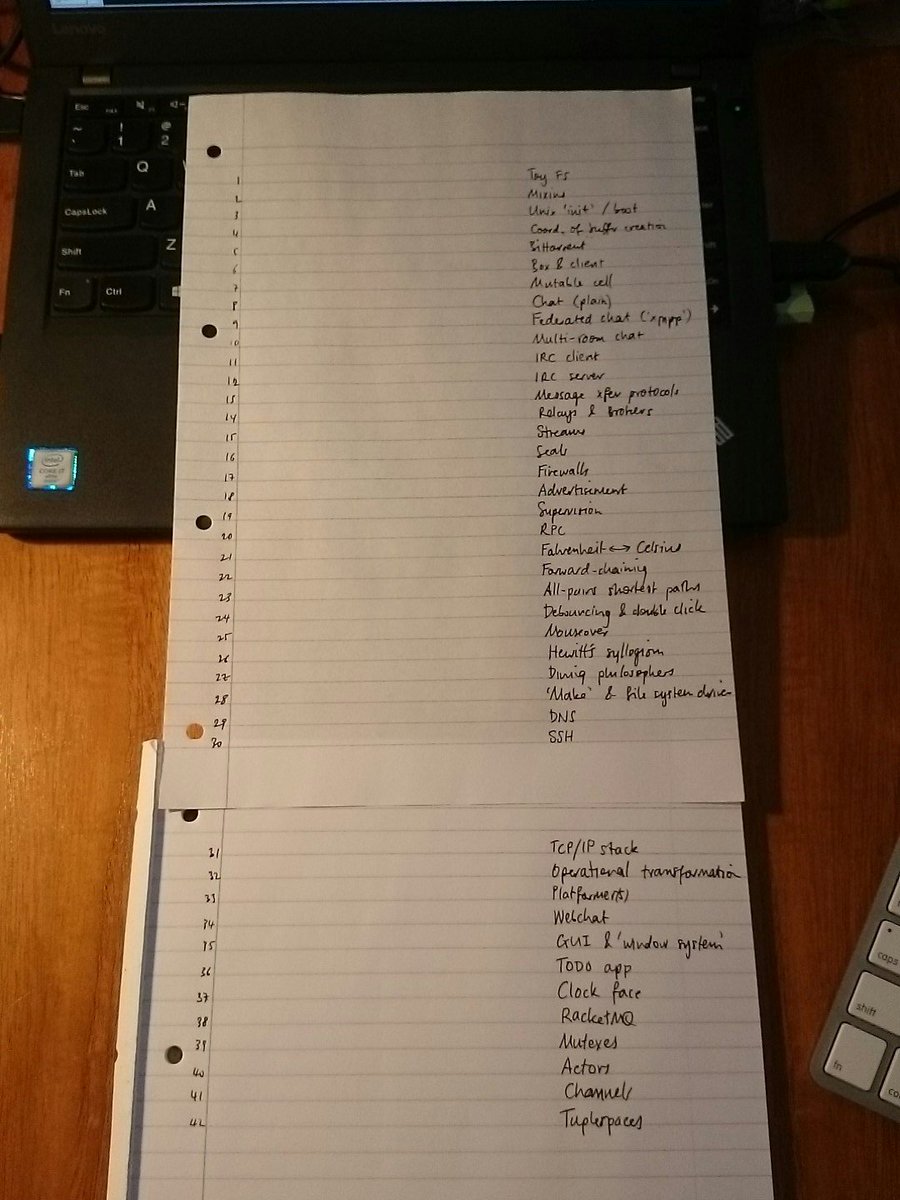 Lenovo
Esc
~ ` ! 1 @ 2
Tab Q
CapsLock A
Shift Z
Fn Ctrl
intel
CORE i7
1 Toy FS
2 Mixins
3 Unix 'init' / boot
4 Coord. of buffer creation
5 Bittorrent
6 Box & client
7 Mutable cell
8 Chat (plain)
9 Federated chat ('xmpp')
10 Multi-room chat
11 IRC client
12 IRC server
13 Message xfer protocols
14 Relays & Brokers
15 Streams
16 Seals
17 Firewalls
18 Advertisement
19 Supervision
20 RPC
21 Fahrenheit ↔ Celsius
22 Forward-chaining
23 All-pairs shortest paths
24 Debouncing & double click
25 Mouseover
26 Hewitt's syllogism
27 Dining philosophers
28 'Make' & file system driver
29 DNS
30 SSH
31 TCP/IP stack
32 Operational transformation
33 Platformer(s)
34 Webchat
35 GUI & 'window system'
36 TODO app
37 Clock face
38 RacketMQ
39 Mutexes
40 Actors
41 Channels
42 Tuplespaces
caps
shift
fn